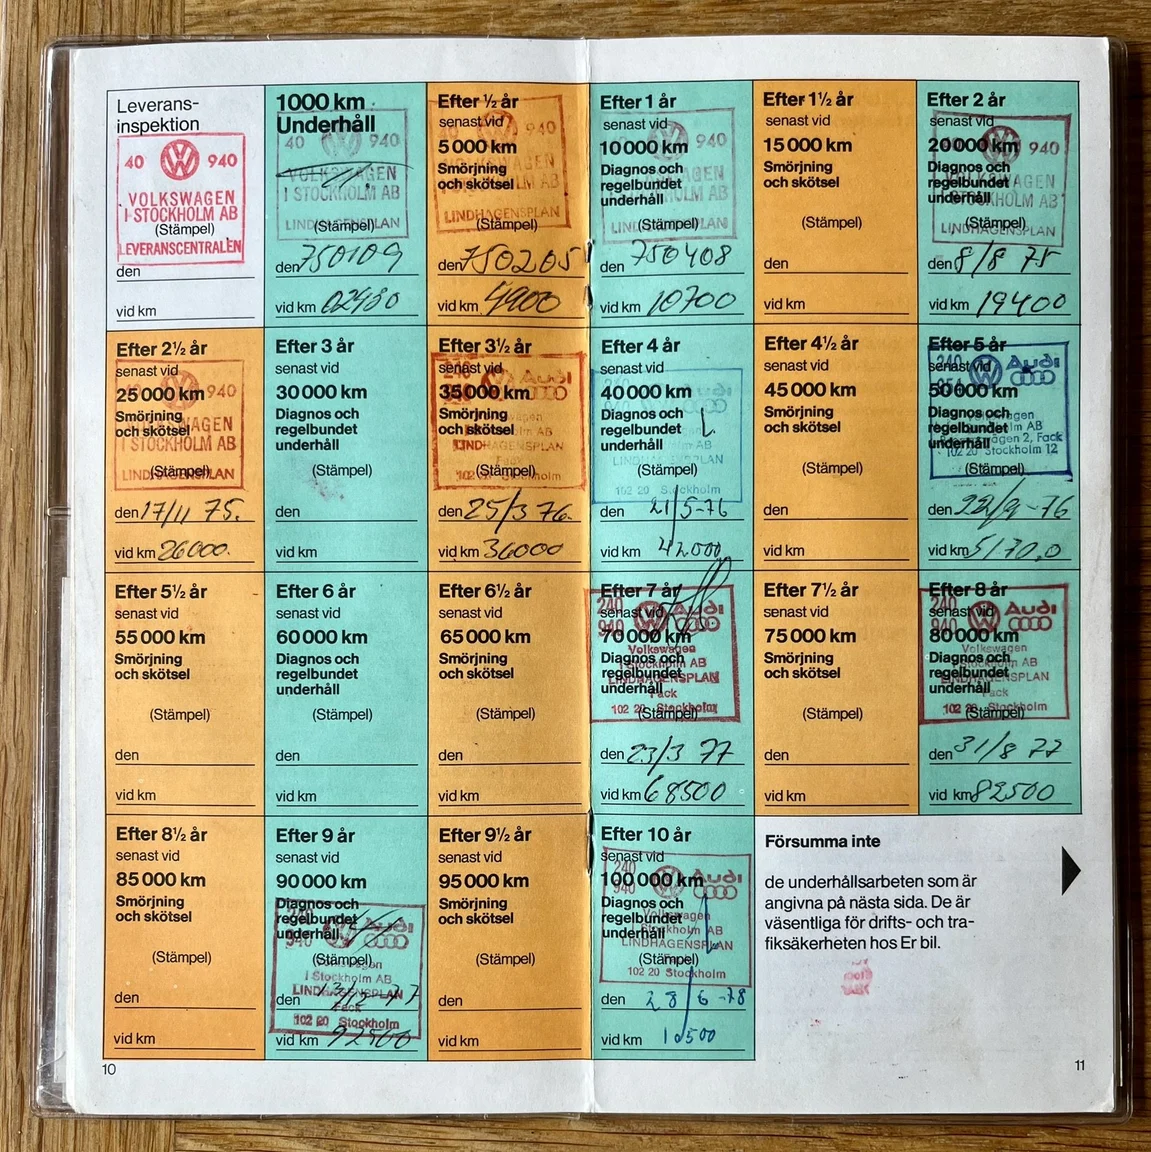 Leverans-
inspektion
40 940
VOLKSWAGEN
I STOCKHOLM AB
(Stämpel)
LEVERANSCENTRALEN
den
vid km
1000 km
Underhåll
40 940
VOLKSWAGEN
I STOCKHOLM AB
(Stämpel)
LINDHAGENSPLAN
den 750109
vid km 02480
Efter ½ år
senast vid
5 000 km
Smörjning
och skötsel
40 940
(Stämpel)
LINDHAGENSPLAN
den 750205
vid km 4900
Efter 1 år
senast vid
10 000 km
Diagnos och
regelbundet
underhåll
40 940
(Stämpel)
LINDHAGENSPLAN
den 750408
vid km 10700
Efter 1½ år
senast vid
15 000 km
Smörjning
och skötsel
(Stämpel)
den
vid km
Efter 2 år
senast vid
20 000 km
Diagnos och
regelbundet
underhåll
940
(Stämpel)
LINDHAGENSPLAN
den 8/8 75
vid km 19400
Efter 2½ år
senast vid
25 000 km
Smörjning
och skötsel
40 940
I STOCKHOLM AB
(Stämpel)
LINDHAGENSPLAN
den 17/11 75.
vid km 26000.
Efter 3 år
senast vid
30 000 km
Diagnos och
regelbundet
underhåll
(Stämpel)
den
vid km
Efter 3½ år
senast vid
35 000 km
Smörjning
och skötsel
Audi
LINDHAGENSPLAN
(Stämpel)
102 20 Stockholm
den 25/3 76.
vid km 36000
Efter 4 år
senast vid
40 000 km
Diagnos och
regelbundet
underhåll
LINDHAGENSPLAN
(Stämpel)
102 20 Stockholm
den 21/5-76
vid km 42000
Efter 4½ år
senast vid
45 000 km
Smörjning
och skötsel
(Stämpel)
den
vid km
Efter 5 år
senast vid
50 000 km
Diagnos och
regelbundet
underhåll
240 Audi
Fack
102 20 Stockholm 12
(Stämpel)
den 22/9-76
vid km 51700
Efter 5½ år
senast vid
55 000 km
Smörjning
och skötsel
(Stämpel)
den
vid km
Efter 6 år
senast vid
60 000 km
Diagnos och
regelbundet
underhåll
(Stämpel)
den
vid km
Efter 6½ år
senast vid
65 000 km
Smörjning
och skötsel
(Stämpel)
den
vid km
Efter 7 år
senast vid
70 000 km
Diagnos och
regelbundet
underhåll
240 Audi
940
Volkswagen
i Stockholm AB
LINDHAGENSPLAN
Fack
102 20 Stockholm
(Stämpel)
den 23/3 77
vid km 68500
Efter 7½ år
senast vid
75 000 km
Smörjning
och skötsel
(Stämpel)
den
vid km
Efter 8 år
senast vid
80 000 km
Diagnos och
regelbundet
underhåll
240 Audi
940
Volkswagen
i Stockholm AB
LINDHAGENSPLAN
Fack
102 20 Stockholm
(Stämpel)
den 31/8 77
vid km 82500
Efter 8½ år
senast vid
85 000 km
Smörjning
och skötsel
(Stämpel)
den
vid km
Efter 9 år
senast vid
90 000 km
Diagnos och
regelbundet
underhåll
940 Audi
(Stämpel)
Volkswagen
i Stockholm AB
LINDHAGENSPLAN
Fack
102 20 Stockholm
den 13/12-77
vid km 92500
Efter 9½ år
senast vid
95 000 km
Smörjning
och skötsel
(Stämpel)
den
vid km
Efter 10 år
senast vid
100 000 km
Diagnos och
regelbundet
underhåll
240 Audi
940
Volkswagen
i Stockholm AB
LINDHAGENSPLAN
(Stämpel)
102 20 Stockholm
den 28/6-78
vid km
Försumma inte
de underhållsarbeten som är
angivna på nästa sida. De är
väsentliga för drifts- och tra-
fiksäkerheten hos Er bil.
10
11